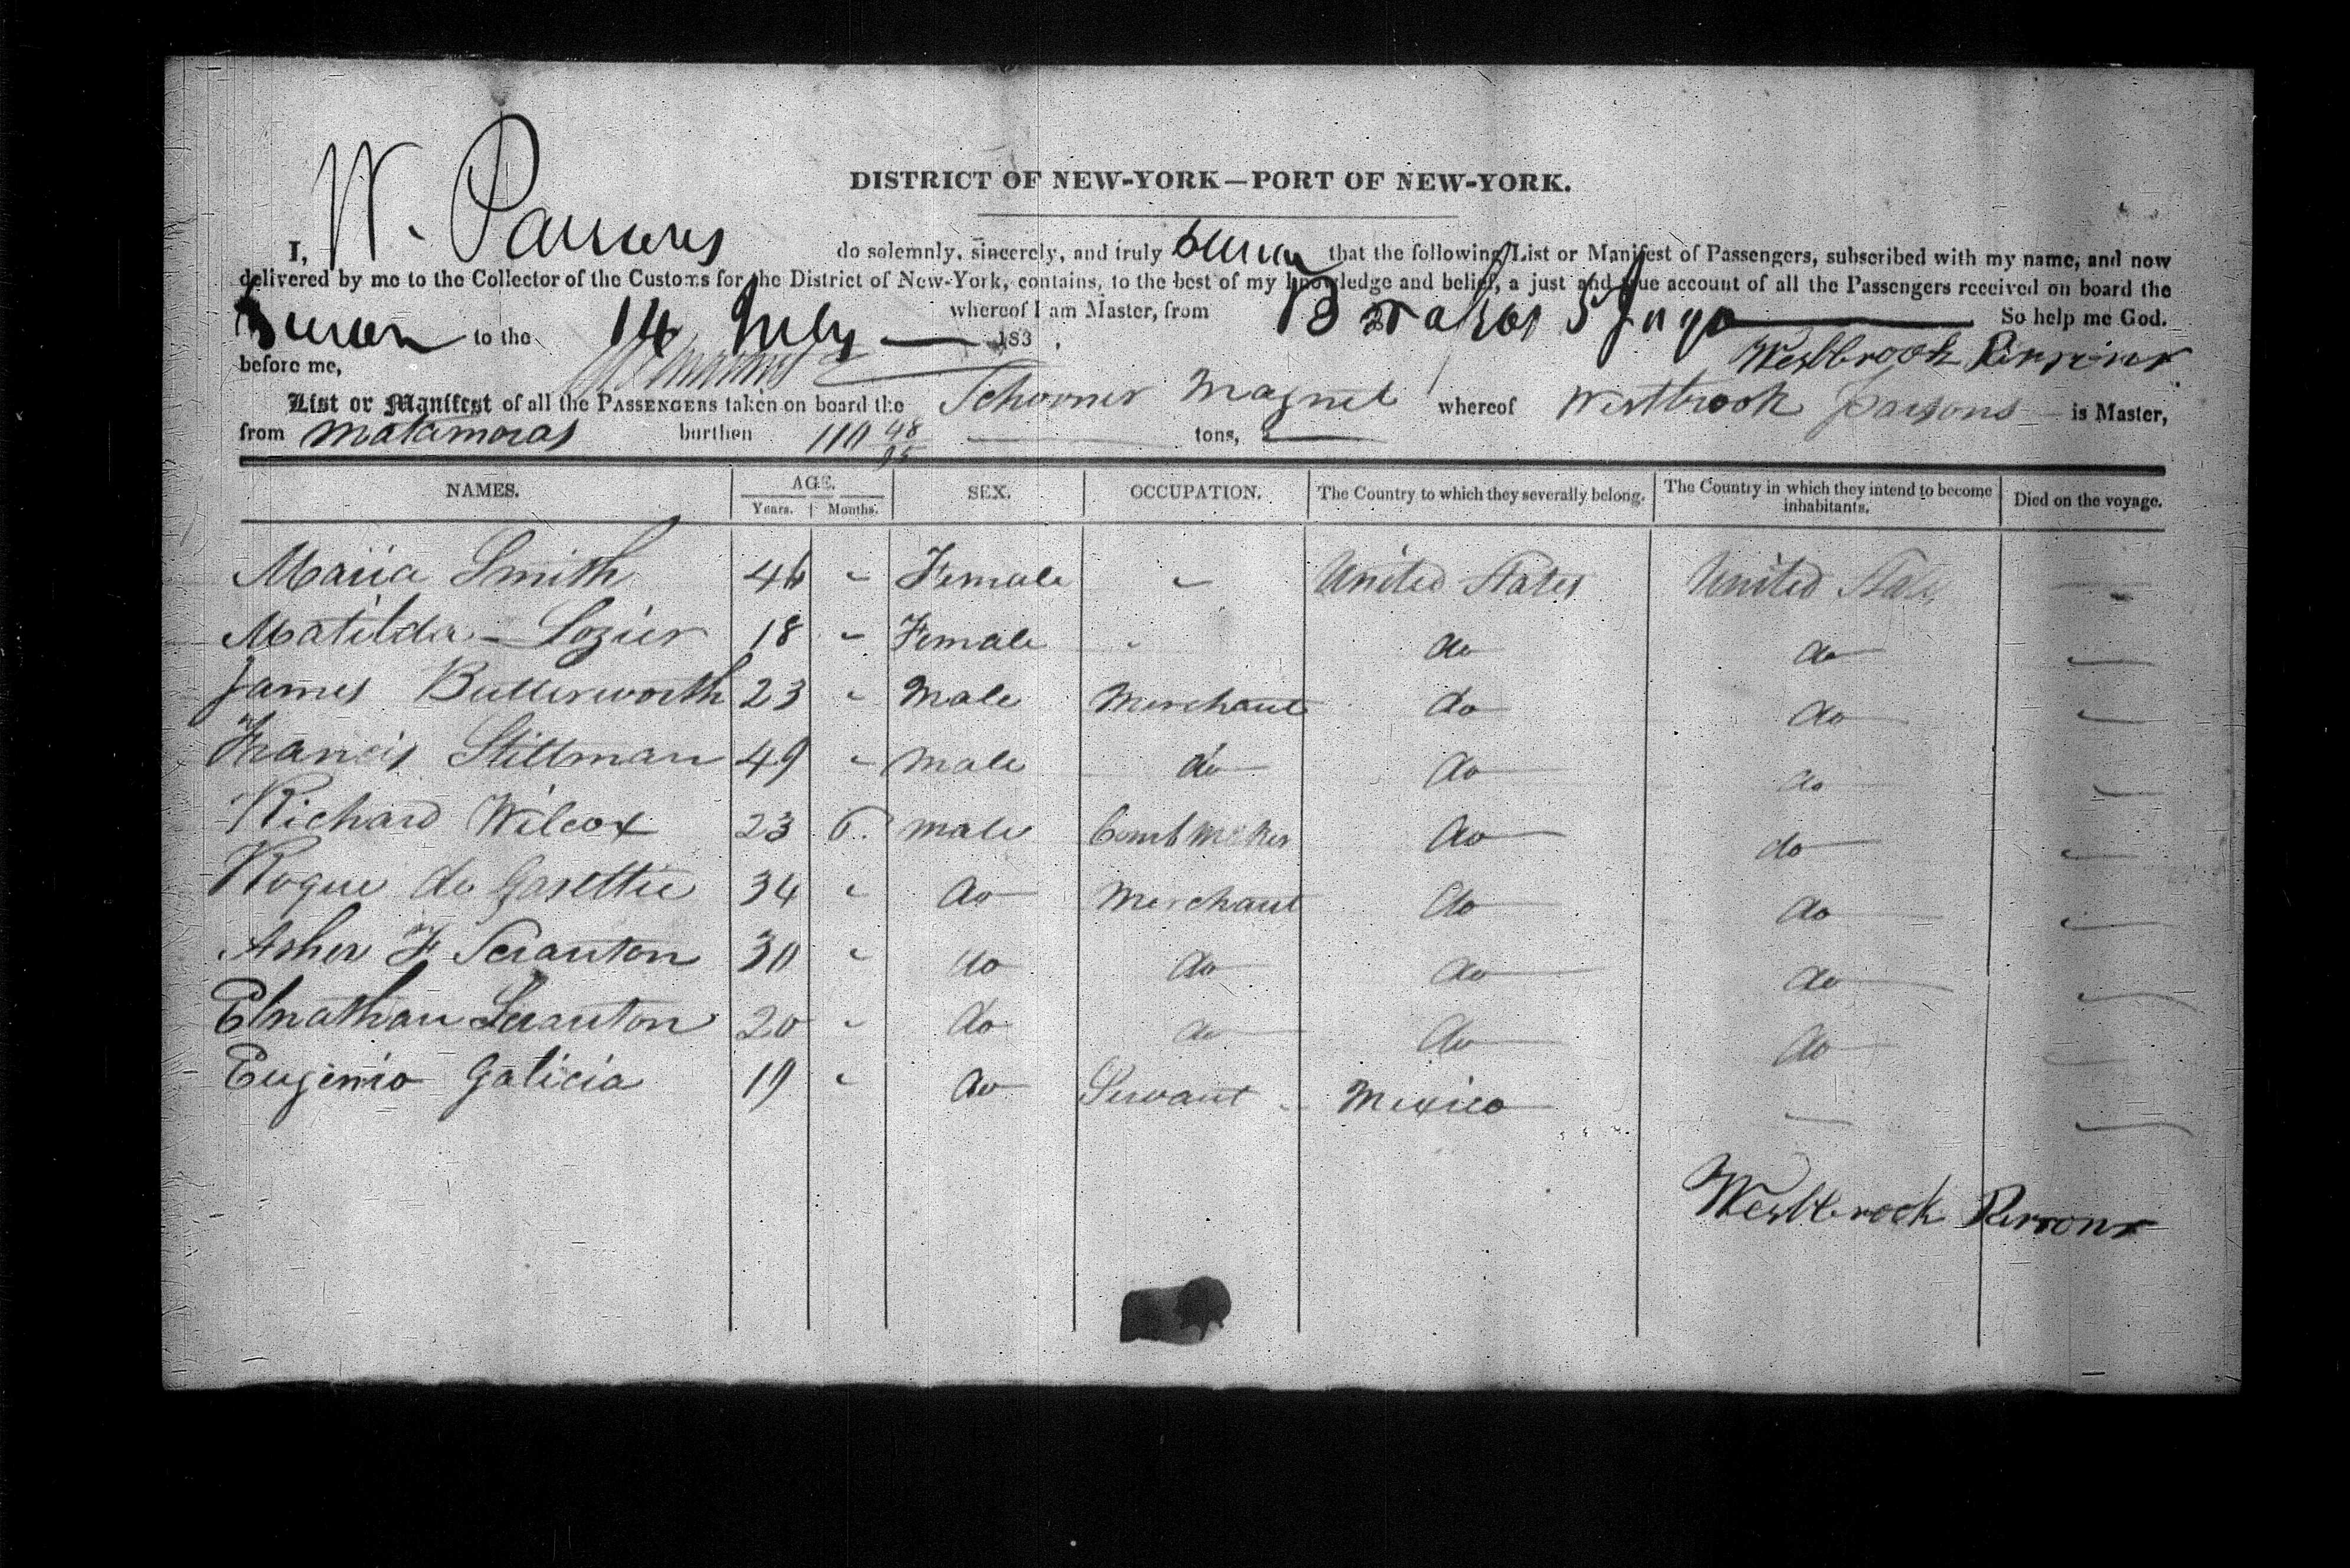 DISTRICT OF NEW-YORK—PORT OF NEW-YORK.
I, W. Parsons do solemnly, sincerely, and truly swear that the following List or Manifest of Passengers, subscribed with my name, and now
delivered by me to the Collector of the Customs for the District of New-York, contains, to the best of my knowledge and belief, a just and true account of all the Passengers received on board the
whereof I am Master, from Brasos St Jago So help me God.
Sworn to the 14 July 183 .
before me, Westbrook Parsons
List or Manifest of all the PASSENGERS taken on board the Schooner Magnet whereof Westbrook Parsons is Master,
from Matamoras burthen 110 48/95 tons,
NAMES. AGE. SEX. OCCUPATION. The Country to which they severally belong. The Country in which they intend to become inhabitants. Died on the voyage.
Years. Months.
Maria Smith 46 " Female " United States United States —
Matilda Lozier 18 " Female " do do —
James Butterworth 23 " Male Merchant do do —
Francis Stillman 49 " Male do do do —
Richard Wilcox 23 6 male Comb Maker do do —
Roque de 34 " do Merchant do do —
Asher F Scranton 30 " do do do do —
Elnathan Scranton 20 " do do do do —
Eugenio Galicia 19 " do Servant Mexico — —
Westbrook Parsons